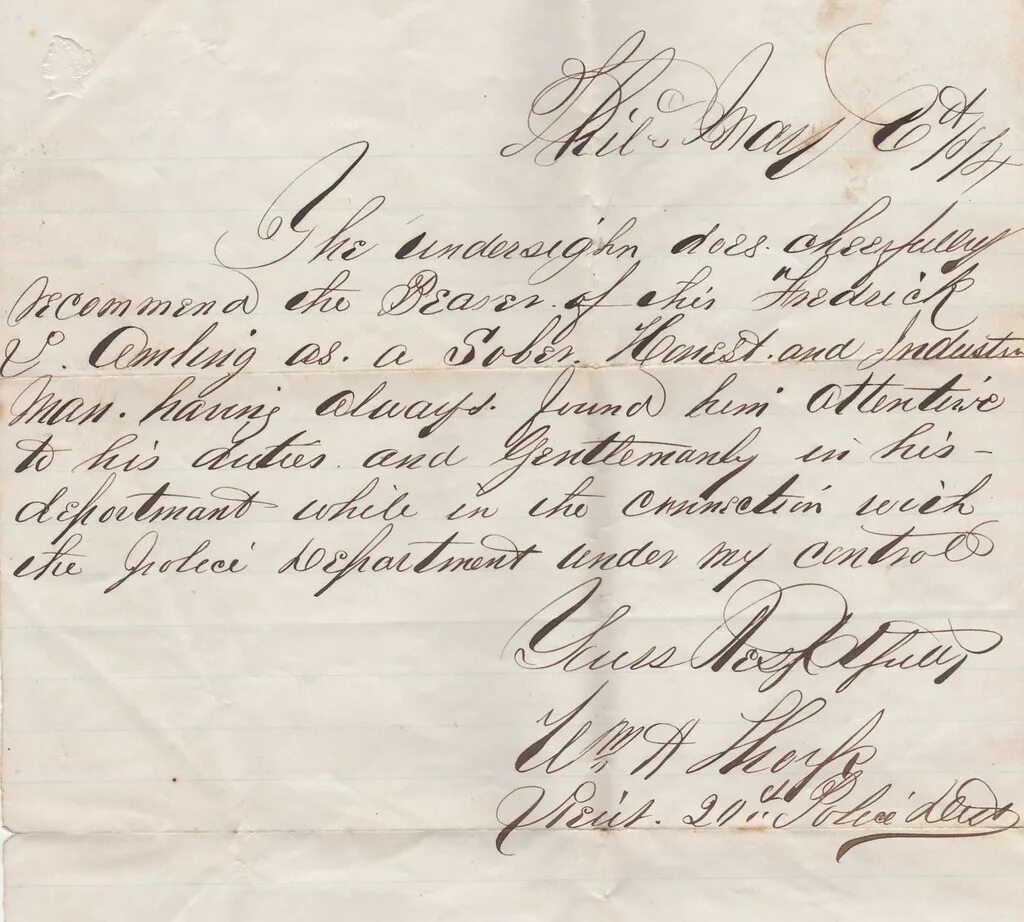 Phila May 6th /64
The undersighn does cheerfully
recommend the Bearer of this Fredrick
C. Amling as a Sober. Honest. and Industri
Man. having always. found him attentive
to his duties and Gentlemanly in his -
deportmant while in the connection with
the Police Department under my control
Yours Respectfully
Wm H Thorp
Lieut. 20th Police Dist